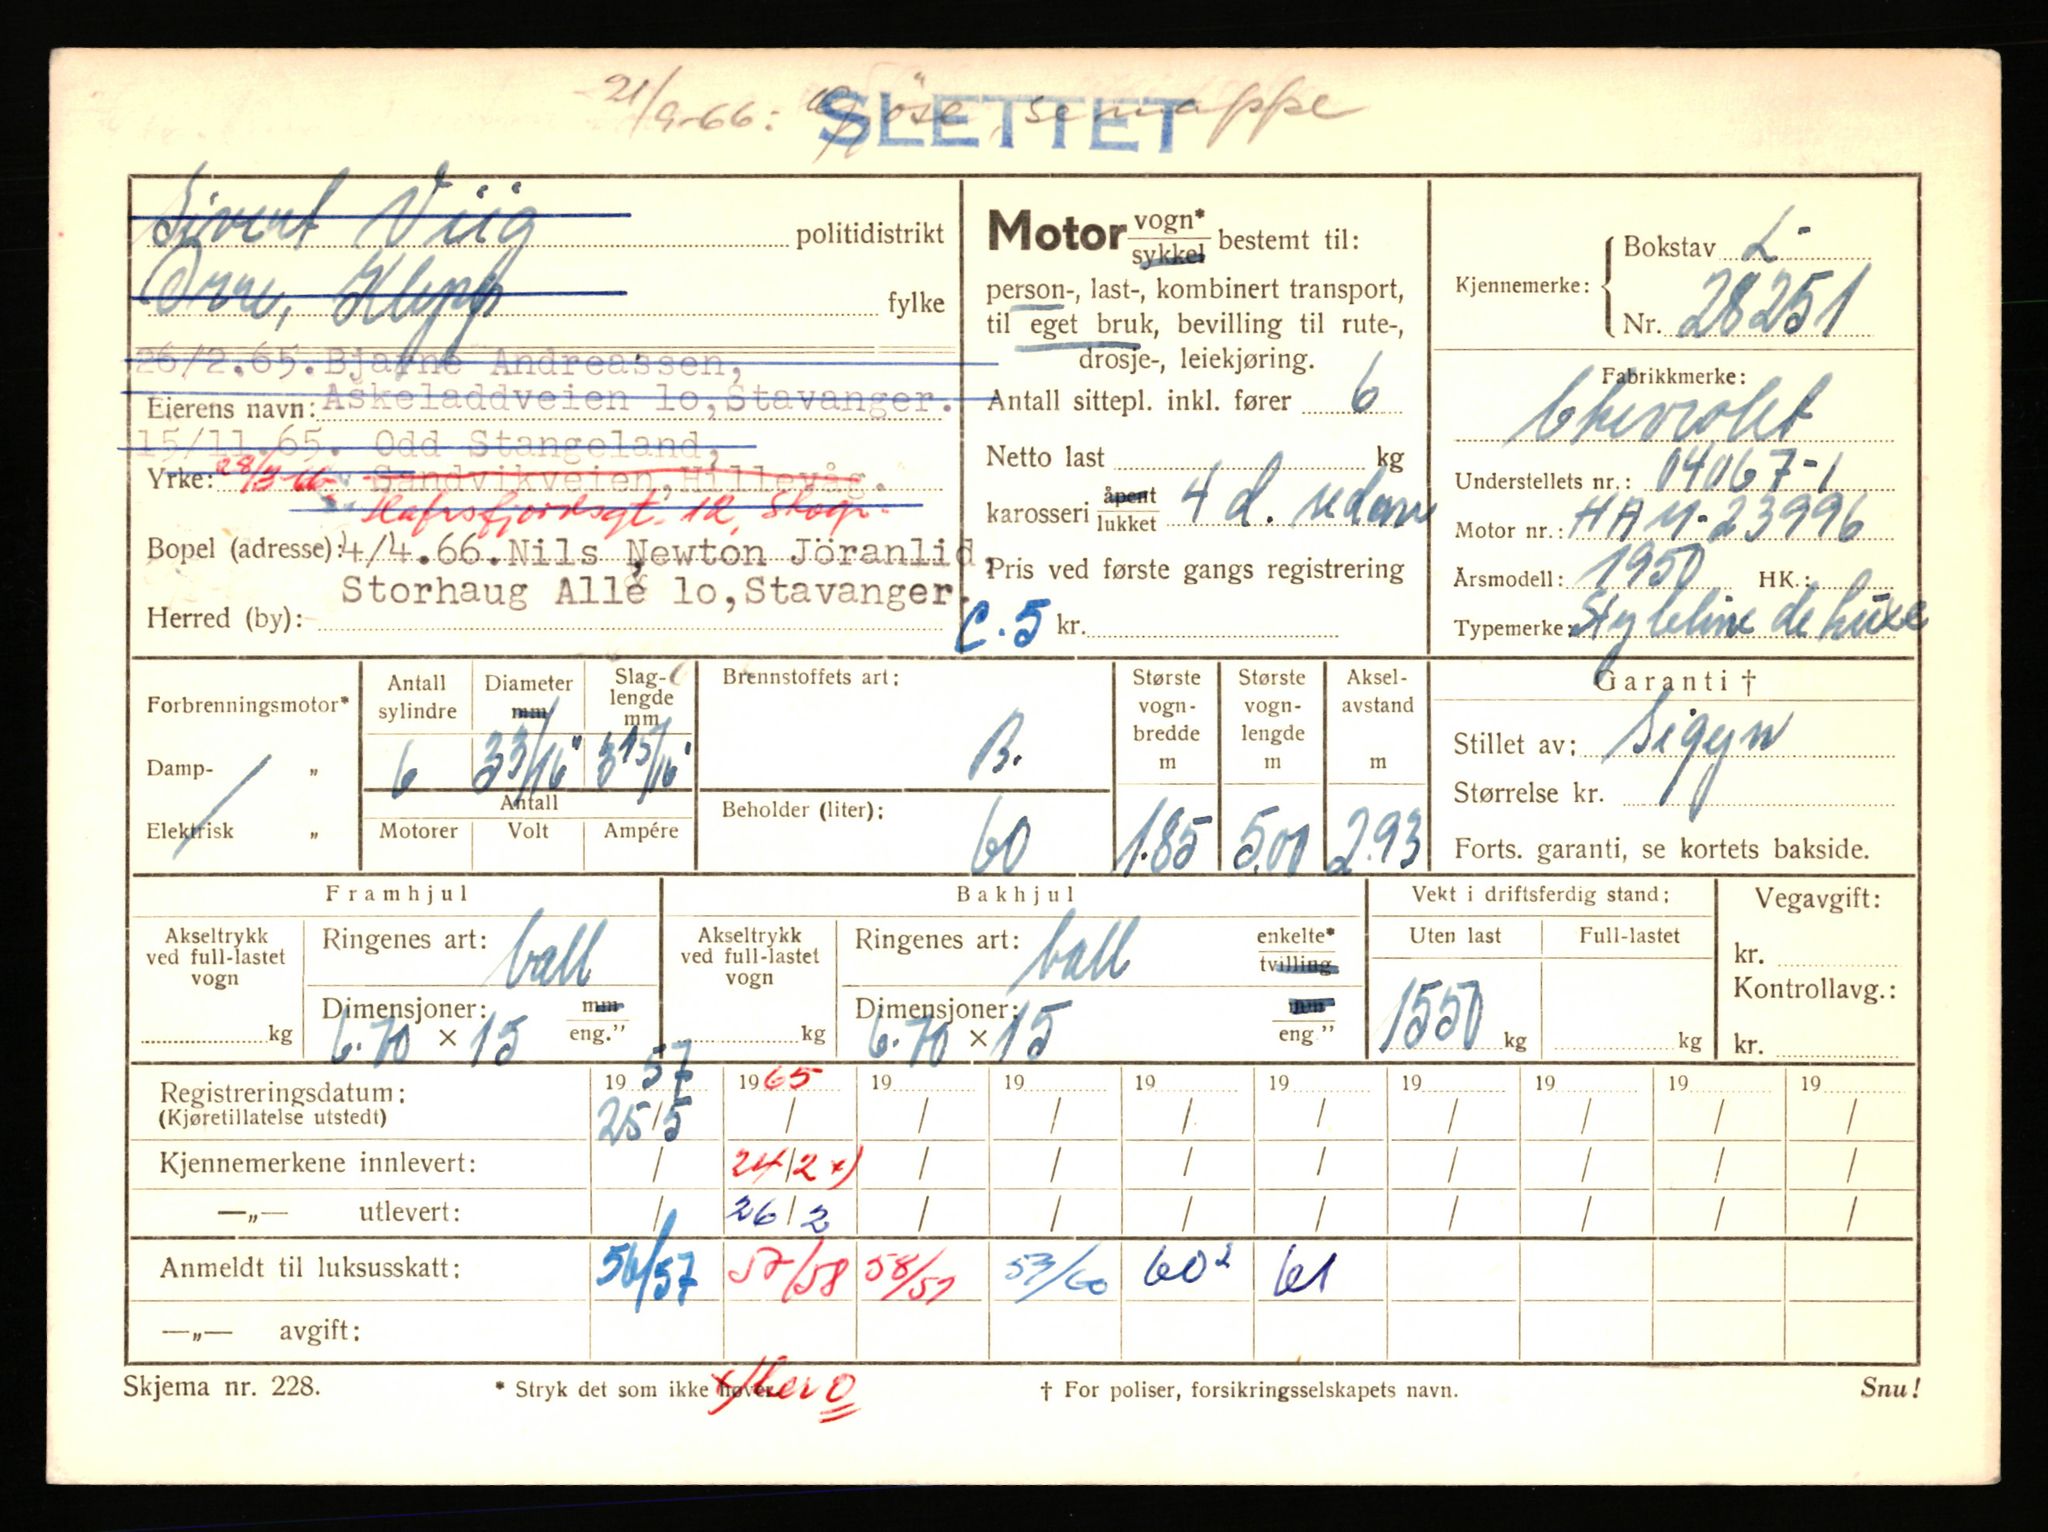 21/9-66: se mappe
SLETTET
Sivert Viig
politidistrikt
Orre, Klepp
fylke
26/2.65. Bjarne Andreassen,
Eierens navn: Askeladdveien lo, Stavanger.
15/11.65. Odd Stangeland,
Yrke: 28/3-66 Sandvikveien, Hillevåg.
Hafrsfjordsgt. 12, Skogn.
Bopel (adresse): 4/4.66. Nils Newton Jöranlid,
Storhaug Allé lo, Stavanger.
Herred (by):
Motor vogn* sykkel bestemt til:
person-, last-, kombinert transport,
til eget bruk, bevilling til rute-,
drosje-, leiekjøring.
Antall sittepl. inkl. fører 6
Netto last kg
karosseri åpent lukket 4 d. sedan
Pris ved første gangs registrering
C.5 kr.
Kjennemerke: Bokstav L-
Nr. 28251
Fabrikkmerke:
Chevrolet
Understellets nr.: 04067-1
Motor nr.: HAM-23996
Årsmodell: 1950 HK.:
Typemerke: Styleline de luxe
Forbrenningsmotor*
Damp- „
Elektrisk „
Antall sylindre
Diameter mm
Slag-lengde mm
6 33/16" 315/16"
Antall
Motorer Volt Ampére
Brennstoffets art:
B.
Beholder (liter):
60
Største vogn-bredde m
1.85
Største vogn-lengde m
5.00
Aksel-avstand m
2.93
Garanti †
Stillet av: Sigyn
Størrelse kr.
Forts. garanti, se kortets bakside.
Framhjul
Akseltrykk ved full-lastet vogn
kg
Ringenes art: ball
Dimensjoner: mm
6.70 × 15 eng.”
Bakhjul
Akseltrykk ved full-lastet vogn
kg
Ringenes art: ball enkelte* tvilling
Dimensjoner: mm
6.70 × 15 eng.”
Vekt i driftsferdig stand:
Uten last Full-lastet
1550 kg kg
Vegavgift:
kr.
Kontrollavg.:
kr.
Registreringsdatum: 1957 1965 19 19 19 19 19 19 19 19
(Kjøretillatelse utstedt) 25/5 / / / / / / / / /
Kjennemerkene innlevert: / 24/2 x) / / / / / / / /
—„— utlevert: / 26/2 / / / / / / / /
Anmeldt til luksusskatt: 56/57 57/58 58/59 59/60 60² 61
—„— avgift:
Skjema nr. 228.
* Stryk det som ikke høver.
† For poliser, forsikringsselskapets navn.
Snu!